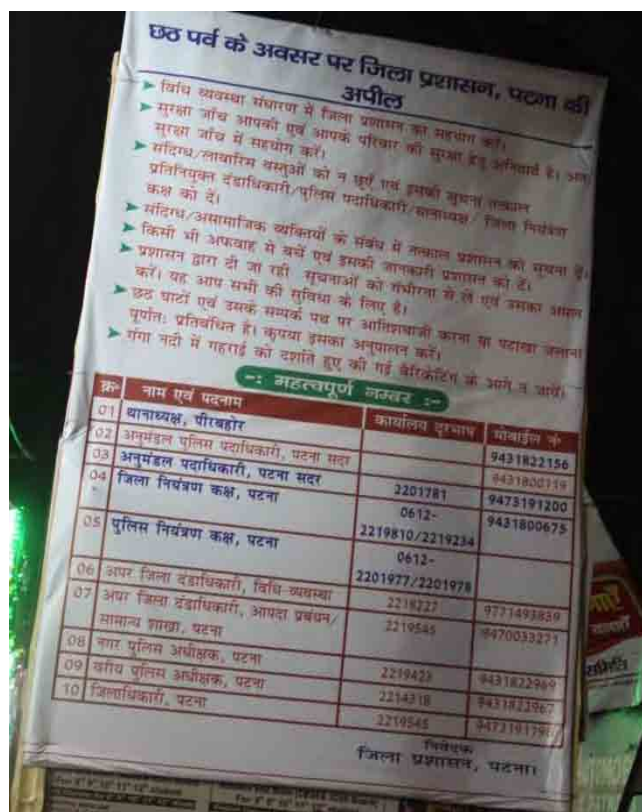 छठ पर्व के अवसर पर जिला प्रशासन, पटना की
अपील
विधि व्यवस्था संधारण में जिला प्रशासन का सहयोग करें।
सुरक्षा जाँच आपकी एवं आपके परिवार की सुरक्षा हेतु अनिवार्य है। अतः
सुरक्षा जाँच में सहयोग करें।
संदिग्ध/लावारिस वस्तुओं को न छूएँ एवं इसकी सूचना तत्काल
प्रतिनियुक्त दंडाधिकारी/पुलिस पदाधिकारी/थानाध्यक्ष/ जिला नियंत्रण
कक्ष को दें।
संदिग्ध/असामाजिक व्यक्तियों के संबंध में तत्काल प्रशासन को सूचना दें।
किसी भी अफवाह से बचें एवं इसकी जानकारी प्रशासन को दें।
प्रशासन द्वारा दी जा रही सूचनाओं को गंभीरता से लें एवं उसका अमल
करें। यह आप सभी की सुविधा के लिए है।
छठ घाटों एवं उसके सम्पर्क पथ पर आतिशबाजी करना या पटाखा जलाना
पूर्णतः प्रतिबंधित है। कृपया इसका अनुपालन करें।
गंगा नदी में गहराई को दर्शाते हुए की गई बैरिकेटिंग के आगे न जायें।
-: महत्वपूर्ण नम्बर :-
क्र॰ नाम एवं पदनाम कार्यालय दूरभाष मोबाईल नं॰
01 थानाध्यक्ष, पीरबहोर 9431822156
02 अनुमंडल पुलिस पदाधिकारी, पटना सदर 9431800119
03 अनुमंडल पदाधिकारी, पटना सदर 2201781 9473191200
04 जिला नियंत्रण कक्ष, पटना 0612- 9431800675
2219810/2219234
05 पुलिस नियंत्रण कक्ष, पटना 0612-
2201977/2201978
06 अपर जिला दंडाधिकारी, विधि-व्यवस्था 2219227 9771493839
07 अपर जिला दंडाधिकारी, आपदा प्रबंधन/ 2219545 9470033271
सामान्य शाखा, पटना
08 नगर पुलिस अधीक्षक, पटना 2219423 9431822969
09 वरीय पुलिस अधीक्षक, पटना 2214318 9431822967
10 जिलाधिकारी, पटना 2219545
निवेदक
जिला प्रशासन, पटना।